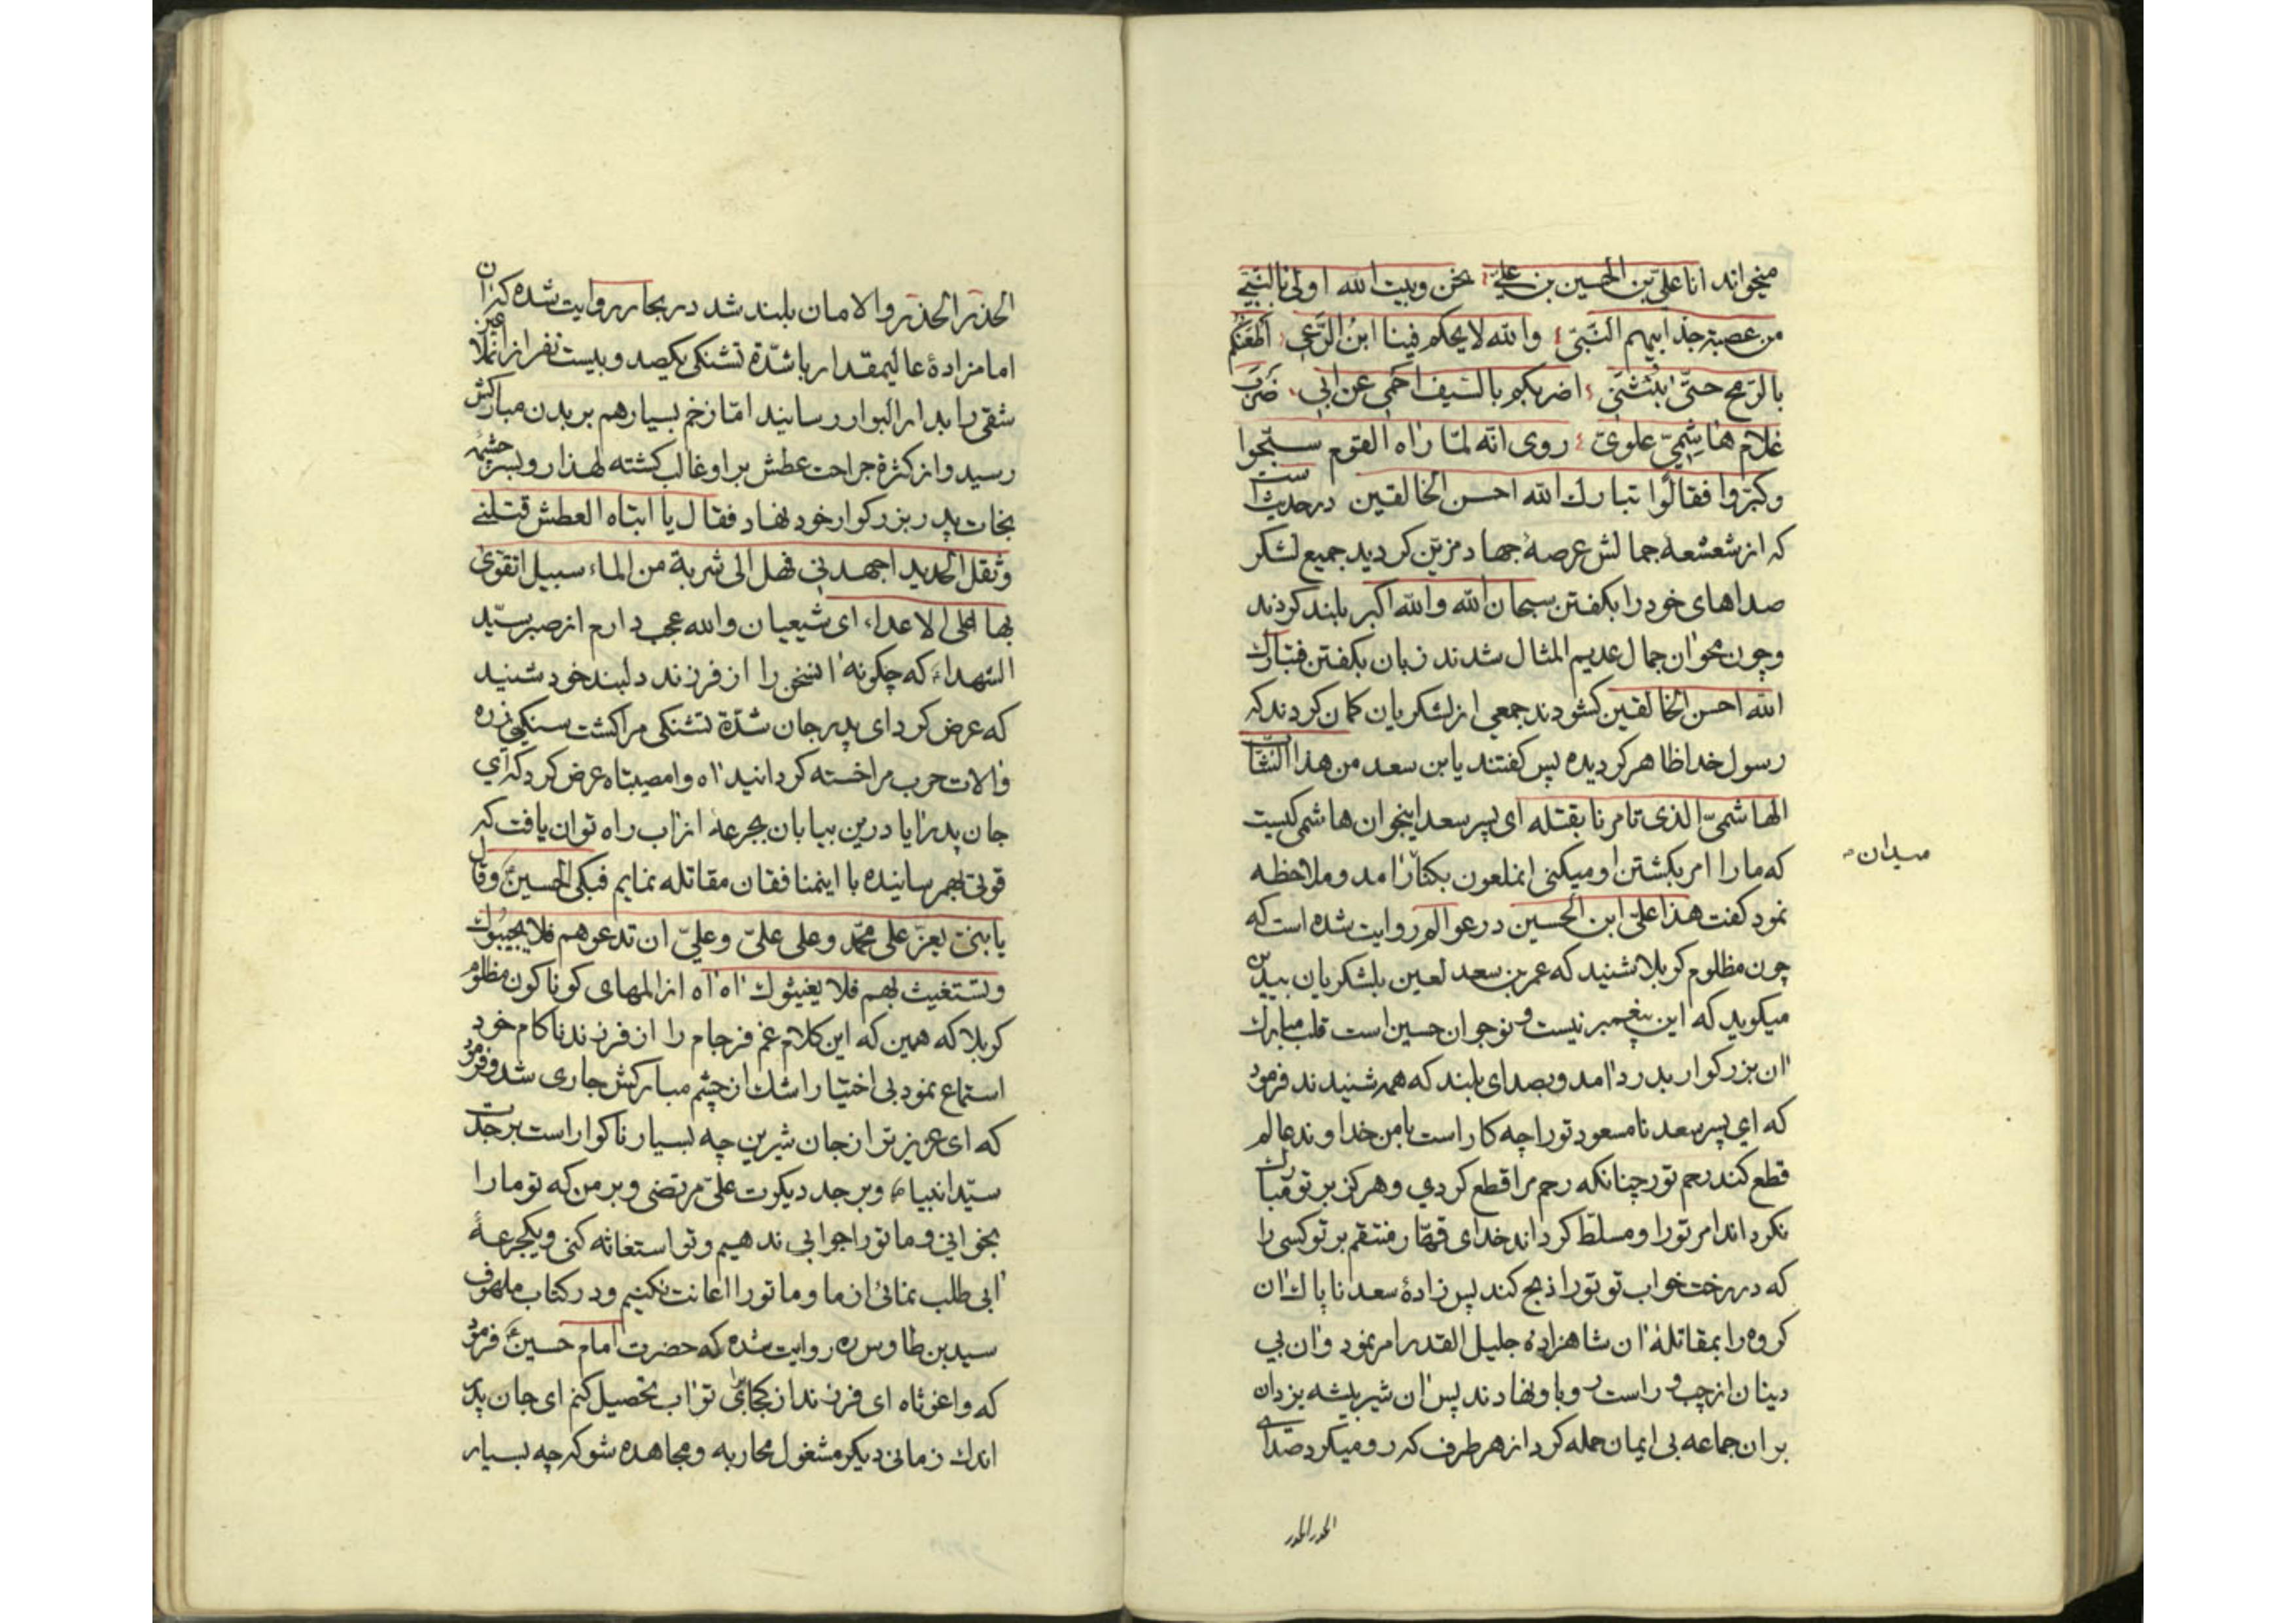 میخواند انا علیّ بن الحسین بن علیّ نحن و بیت الله اولی بالنبیّ
من عصبة جدّ ابیهم النّبیّ والله لا یحکم فینا ابن الدّعی اطعنکم
بالرّمح حتّی ینثنی اضربکم بالسّیف احمی عن ابی ضرب
غلام هاشمیّ علویّ روی انّه لمّا راه القوم سبّحوا
و کبّروا فقالوا تبارک الله احسن الخالقین در حدیث است
که از شعشعهٔ جمالش عرصهٔ جهاد مزیّن کردید جمیع لشکر
صداهای خود را بکفتن سبحان الله والله اکبر بلند کردند
و چون محو ان جمال عدیم المثال شدند زبان بکفتن فتبارک
الله احسن الخالقین کشودند جمعی از لشکریان کمان کردند که
رسول خدا ظاهر کردیده پس کفتند یابن سعد من هذا الشّاب
الهاشمیّ الذی تامرنا بقتله ای پسر سعد اینجوان هاشمی کیست
که ما را امر بکشتن او میکنی انملعون بکنار امد و ملاحظه
میدان
نمود کفت هذا علیّ ابن الحسین در عوالم روایت شده است که
چون مظلوم کربلا شنید که عمر بن سعد لعین بلشکریان بیدین
میکوید که این پیغمبر نیست و نوجوان حسین است قلب مبارک
ان بزرکوار بدرد امد و بصدای بلند که همه شنیدند فرمود
که ای پسر سعد نامسعود تو را چه کار است با من خداوند عالم
قطع کند رحم تو را چنانکه رحم مرا قطع کردی و هرکز بر تو مبارک
نکرداند امر تو را و مسلّط کرداند خدای قهّار منتقم بر تو کسی را
که در رخت خواب تو تو را ذبح کند پس زادهٔ سعد ناپاک ان
کروه را بمقاتلهٔ ان شاهزادهٔ جلیل القدر امر نمود و ان بی
دینان از چپ و راست رو باو نهادند پس ان شیر بیشه یزدان
بر ان جماعه بی ایمان حمله کرد از هر طرف که رو میکرد صدای
الحذر الحذر
الحذر الحذر و الامان بلند شد در بحار روایت شده که ان
امامزادهٔ عالیمقدار با شدّة تشنکی یکصد و بیست نفر از انملاعین
شقی را بدار البوار رسانید امّا زخم بسیار هم بر بدن مبارکش
رسید و از کثرة جراحت عطش بر او غالب کشته لهذا رو بسرچشمهٔ
نجات پدر بزرکوار خود نهاد فقال یا ابتاه العطش قتلنی
و ثقل الحدید اجهدنی فهل الی شربة من الماء سبیل اتقوّی
بها علی الاعداء ای شیعیان والله عجب دارم از صبر سیّد
الشهداء که چکونه انسخن را از فرزند دلبند خود شنید
که عرض کرد ای پدر جان شدّة تشنکی مرا کشت سنکینی زره
و الات حرب مرا خسته کردانید اه وا مصیبتاه عرض کرد که ای
جان پدر ایا درین بیابان بجرعهٔ از اب راه توان یافت که
قوتی بهم رسانیده با اینمنافقان مقاتله نمایم فبکی الحسین ع و قال
یا بنیّ یعزّ علی محمّد و علی علیّ و علیّ ان تدعوهم فلا یجیبوک
و تستغیث بهم فلا یغیثوک اه اه از المهای کوناکون مظلوم
کربلا که همین که این کلام غم فرجام را از فرزند ناکام خود
استماع نمود بی اختیار اشک از چشم مبارکش جاری شد و فرمود
که ای عزیزتر از جان شیرین چه بسیار ناکوار است بر جدت
سیّد انبیاء و بر جد دیکرت علیّ مرتضی و بر من که تو ما را
بخوانی و ما تو را جوابی ندهیم و تو استغاثه کنی و یکجرعهٔ
ابی طلب نمائی از ما و ما تو را اعانت نکنیم و در کتاب ملهوف
سید بن طاوس ره روایت شده که حضرت امام حسین ع فرمود
که وا غوثاه ای فرزند از کجا برای تو اب تحصیل کنم ای جان پدر
اندک زمانی دیکر مشغول محاربه و مجاهده شو که چه بسیار